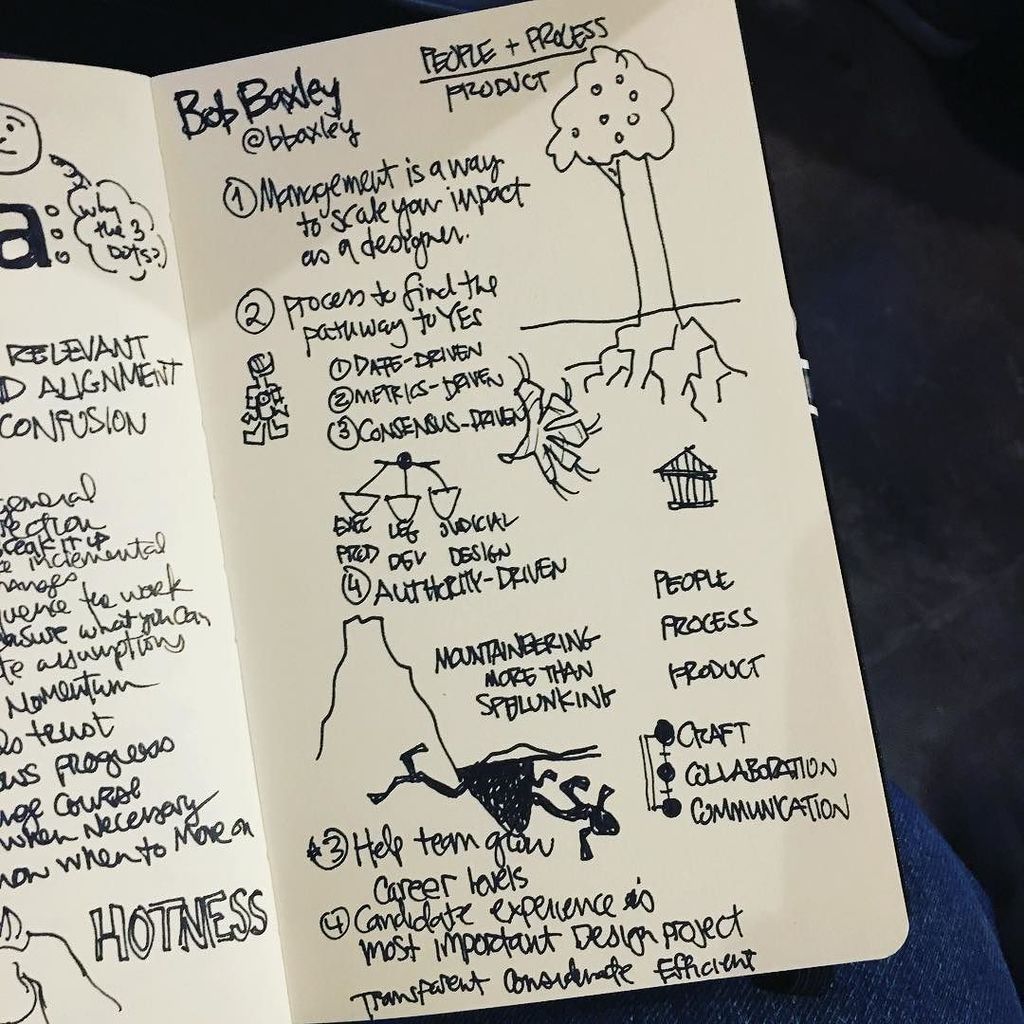 why
the 3
dots?
a:
RELEVANT
D ALIGNMENT
CONFUSION
general
ection
break it up
incremental
hanges
quence the work
easure what you can
te assumptions
Momentum
trust
ws progress
nge course
when necessary
now when to move on
HOTNESS
PEOPLE + PROCESS
PRODUCT
Bob Baxley
@bbaxley
① Management is a way
to scale your impact
as a designer.
② process to find the
pathway to YES
① DATE-DRIVEN
② METRICS-DRIVEN
③ CONSENSUS-DRIVEN
EXEC LEG JUDICIAL
PROD DEV DESIGN
④ AUTHORITY-DRIVEN
MOUNTAINEERING
MORE THAN
SPELUNKING
PEOPLE
PROCESS
PRODUCT
CRAFT
COLLABORATION
COMMUNICATION
③ Help team grow
career levels
④ Candidate experience is
most important Design project
Transparent Considerate Efficient